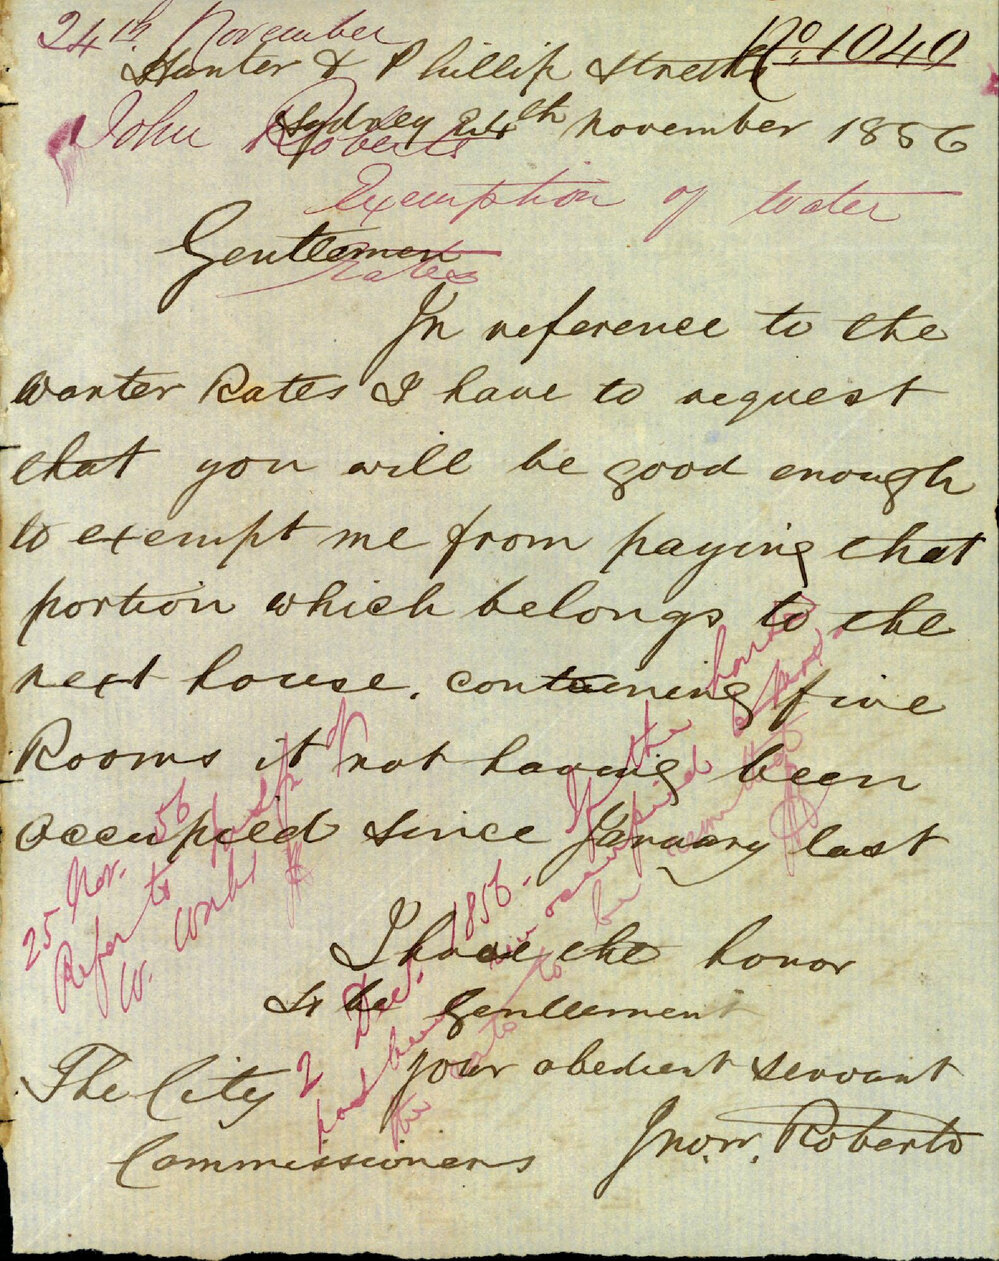 24th November
No. 1040
Hunter & Phillip Streets
Sydney 24th November 1856
John Roberts
Exemption of Water
Rates
Gentlemen
In reference to the
Wanter Rates I have to request
that you will be good enough
to exempt me from paying that
portion which belongs to the
next house. containing five
Rooms it not having been
occupied since January last
I have the honor
to be Gentlemen
your obedient servant
Jno. W. Roberts
The City
Commissioners
25 Nov. 56
Refer to of
W. Works
2 Dec. 1856. If the house
has been occupied
the rate to be remitted